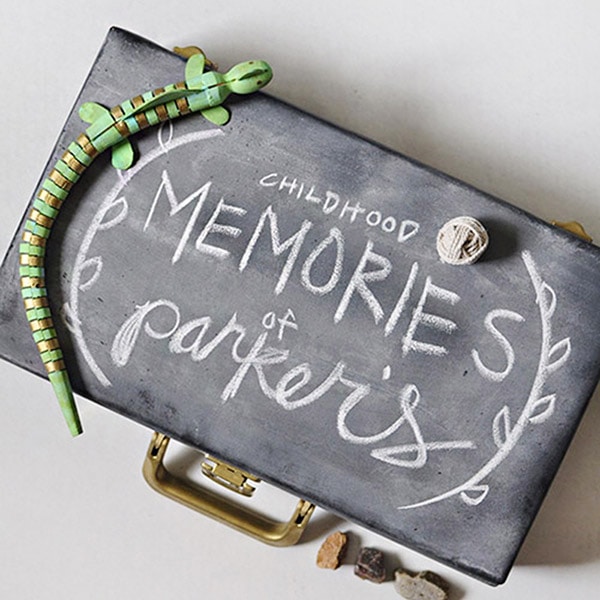 CHILDHOOD
MEMORIES
of
parker's